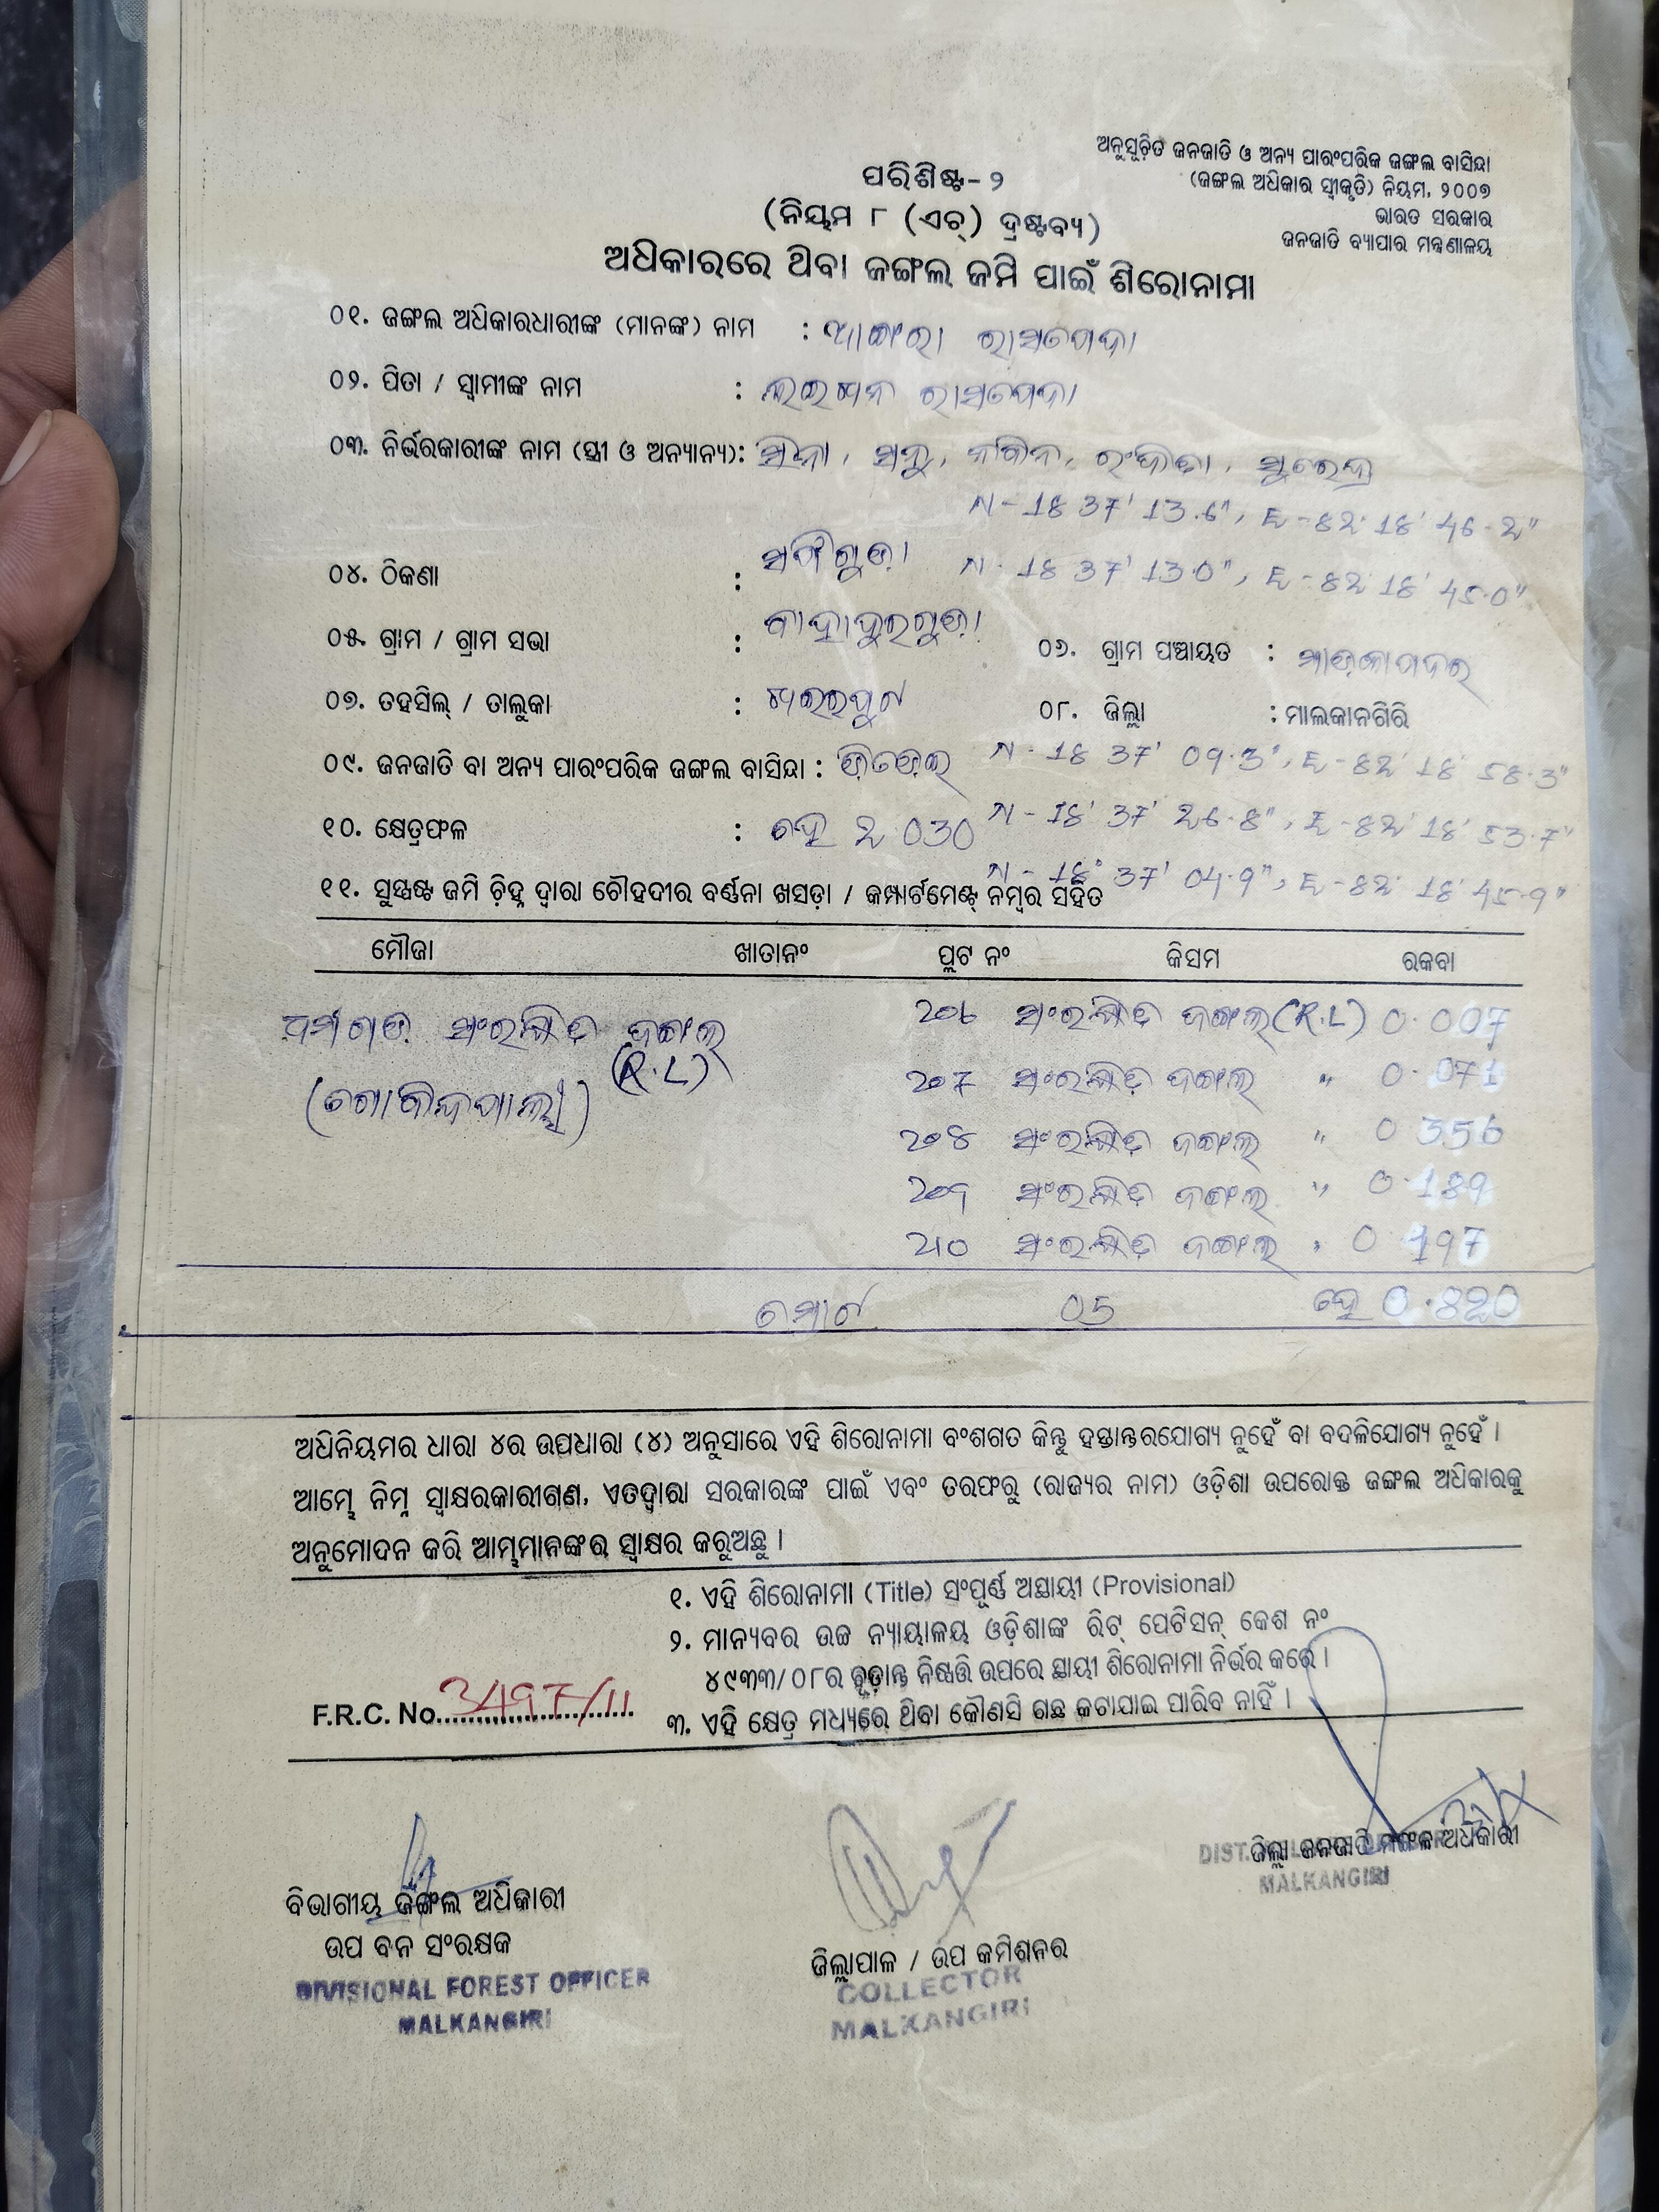 ଅନୁସୂଚିତ ଜନଜାତି ଓ ଅନ୍ୟ ପାରଂପରିକ ଜଙ୍ଗଲ ବାସିନ୍ଦା
(ଜଙ୍ଗଲ ଅଧିକାର ସ୍ୱୀକୃତି) ନିୟମ, ୨୦୦୭
ଭାରତ ସରକାର
ଜନଜାତି ବ୍ୟାପାର ମନ୍ତ୍ରଣାଳୟ
ପରିଶିଷ୍ଟ-୨
(ନିୟମ ୮ (ଏଚ୍) ଦ୍ରଷ୍ଟବ୍ୟ)
ଅଧିକାରରେ ଥିବା ଜଙ୍ଗଲ ଜମି ପାଇଁ ଶିରୋନାମା
୦୧. ଜଙ୍ଗଲ ଅଧିକାରଧାରୀଙ୍କ (ମାନଙ୍କ) ନାମ :
୦୨. ପିତା / ସ୍ୱାମୀଙ୍କ ନାମ :
୦୩. ନିର୍ଭରକାରୀଙ୍କ ନାମ (ସ୍ତ୍ରୀ ଓ ଅନ୍ୟାନ୍ୟ):
N-18 37' 13.6", E-82 18' 46.2"
୦୪. ଠିକଣା : N-18 37' 13.0", E-82 18' 45.0"
୦୫. ଗ୍ରାମ / ଗ୍ରାମ ସଭା : ବାହାଦୁରଗୁଡ଼ା ୦୬. ଗ୍ରାମ ପଞ୍ଚାୟତ :
୦୭. ତହସିଲ୍ / ତାଲୁକା : ଖଇରପୁଟ ୦୮. ଜିଲ୍ଲା : ମାଲକାନଗିରି
୦୯. ଜନଜାତି ବା ଅନ୍ୟ ପାରଂପରିକ ଜଙ୍ଗଲ ବାସିନ୍ଦା : N-18 37' 09.3", E-82 18' 58.3"
୧୦. କ୍ଷେତ୍ରଫଳ : ହେ 2.030 N-18' 37' 26.8", E-82' 18' 53.7"
N-18° 37' 04.9", E-82' 18' 45.9"
୧୧. ସୁସ୍ପଷ୍ଟ ଜମି ଚ଼ିହ୍ନ ଦ୍ୱାରା ଚୌହଦୀର ବର୍ଣ୍ଣନା ଖସଡ଼ା / କମ୍ପାର୍ଟମେଣ୍ଟ୍ ନମ୍ବର ସହିତ
ମୌଜା ଖାତାନଂ ପ୍ଲଟ ନଂ କିସମ ରକବା
ସଂରକ୍ଷିତ ଜଙ୍ଗଲ (R.L) 206 ସଂରକ୍ଷିତ ଜଙ୍ଗଲ (R.L) 0.007
(ଗୋବିନ୍ଦପାଲ୍ଲୀ) 207 ସଂରକ୍ଷିତ ଜଙ୍ଗଲ " 0.071
208 ସଂରକ୍ଷିତ ଜଙ୍ଗଲ " 0.356
209 ସଂରକ୍ଷିତ ଜଙ୍ଗଲ " 0.189
210 ସଂରକ୍ଷିତ ଜଙ୍ଗଲ " 0.197
ମୋଟ 05 ହେ 0.820
ଅଧିନିୟମର ଧାରା ୪ର ଉପଧାରା (୪) ଅନୁସାରେ ଏହି ଶିରୋନାମା ବଂଶଗତ କିନ୍ତୁ ହସ୍ତାନ୍ତରଯୋଗ୍ୟ ନୁହେଁ ବା ବଦଳିଯୋଗ୍ୟ ନୁହେଁ ।
ଆମ୍ଭେ ନିମ୍ନ ସ୍ୱାକ୍ଷରକାରୀଗଣ, ଏତଦ୍ୱାରା ସରକାରଙ୍କ ପାଇଁ ଏବଂ ତରଫରୁ (ରାଜ୍ୟର ନାମ) ଓଡ଼ିଶା ଉପରୋକ୍ତ ଜଙ୍ଗଲ ଅଧିକାରକୁ
ଅନୁମୋଦନ କରି ଆମ୍ଭମାନଙ୍କର ସ୍ୱାକ୍ଷର କରୁଅଛୁ ।
୧. ଏହି ଶିରୋନାମା (Title) ସଂପୂର୍ଣ୍ଣ ଅସ୍ଥାୟୀ (Provisional)
୨. ମାନ୍ୟବର ଉଚ୍ଚ ନ୍ୟାୟାଳୟ ଓଡ଼ିଶାଙ୍କ ରିଟ୍ ପେଟିସନ୍ କେଶ ନଂ
୪୯୩୩/୦୮ର ଚୂଡ଼ାନ୍ତ ନିଷ୍ପତ୍ତି ଉପରେ ସ୍ଥାୟୀ ଶିରୋନାମା ନିର୍ଭର କରେ ।
F.R.C. No. 3497/11
୩. ଏହି କ୍ଷେତ୍ର ମଧ୍ୟରେ ଥିବା କୌଣସି ଗଛ କଟାଯାଇ ପାରିବ ନାହିଁ ।
ଜିଲ୍ଲା ଜନଜାତି ମଙ୍ଗଳ ଅଧିକାରୀ
DIST.
MALKANGIRI
ବିଭାଗୀୟ ଜଙ୍ଗଲ ଅଧିକାରୀ
ଉପ ବନ ସଂରକ୍ଷକ
DIVISIONAL FOREST OFFICER
MALKANGIRI
ଜିଲ୍ଲାପାଳ / ଉପ କମିଶନର
COLLECTOR
MALKANGIRI